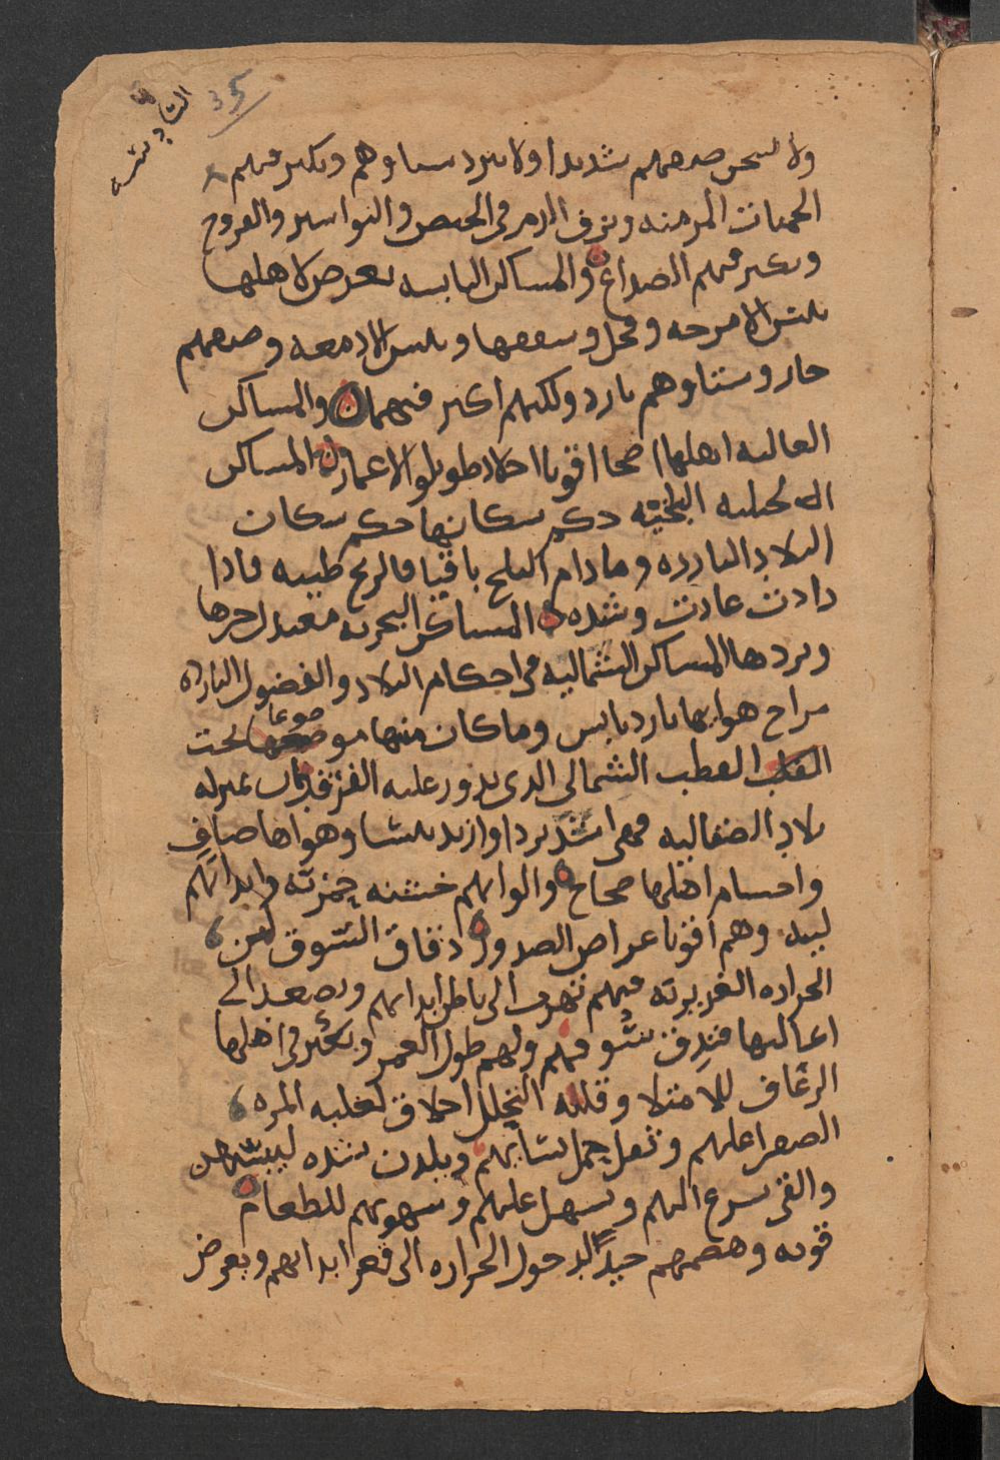 35
ولا يسخن صيفهم شديدا ولا يبرد شتاوهم ويكثر فيهم
الحميات المزمنه ونزف الدم في الحيض والبواسير والقروح
ويكثر فيهم الصداع والمساكن اليابسه يعرض لاهلها
يبس الامزجه وقحل وسففها ويبس الادمغه وصيفهم
حار وشتاوهم بارد ولكنهم اكثر فهما والمساكن
العاليه اهلها اصحا اقويا اجلاد طويلوا الاعمار المساكن
الثلجيه حكم سكانها حكم سكان
البلاد البارده وما دام الثلج باقيا فالريح طيبه فاذا
دابت عادت وشده المساكن البحريه معتدل حرها
وبردها المساكن الشماليه في احكام البلاد والفصول البارده
مزاج هوايها بارد يابس وما كان منها موضوعا تحت
القطب الشمالي الذي يدور عليه الفرقدان بمنزله
بلاد الصقالبه فهي اشد بردا وازيد يبسا وهواها صاف
واجسام اهلها صحاح والوانهم خشنه حمريه وابدانهم
وهم اقويا عراض الصدور دقاق السوق لان
الحراره الغريزيه فيهم تهرب الي باطن ابدانهم وتصعد الي
اعاليها فتدق سوقهم ولهم طول العمر ويكثر في اهلها
الرعاف للامتلا وقله التحلل اخلاق لغلبه المره
الصفرا عليهم ويقل حمل نسايهم ويلدن بشده ليبسهن
والقي يسرع اليهم ويسهل عليهم وشهوتهم للطعام
قويه وهضمهم جيدا لدخول الحراره الي قعر ابدانهم ويعرض